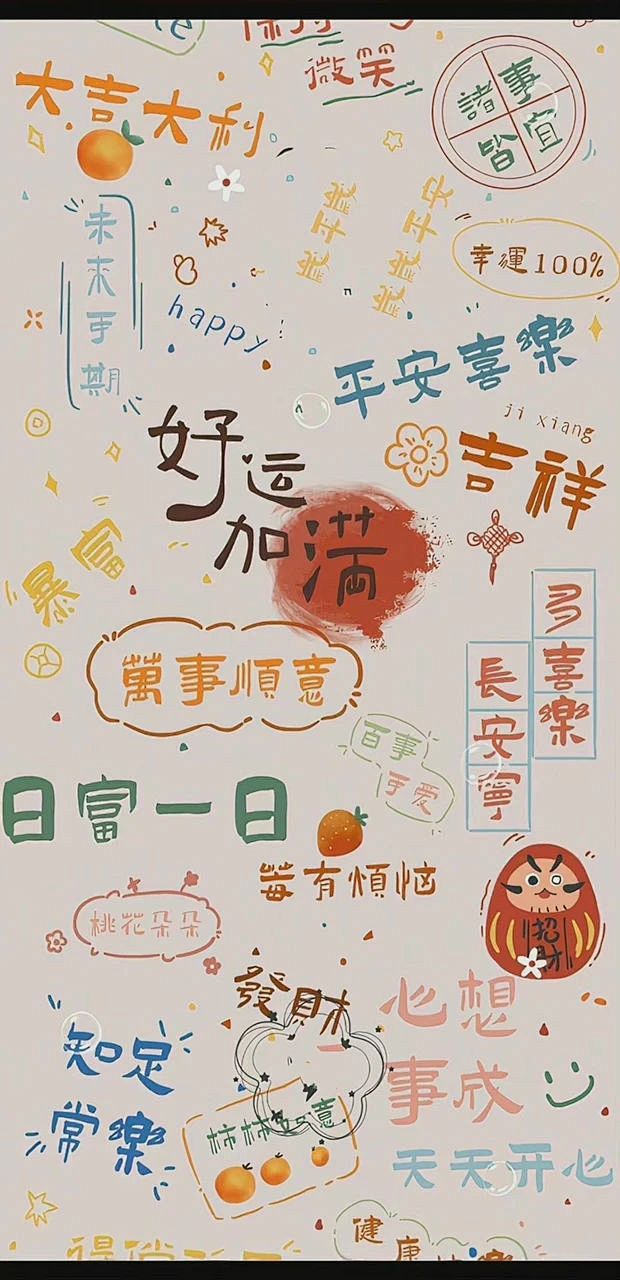 保持
微笑
大吉大利
諸事
皆宜
未来可期
歲歲平安
幸運100%
happy
平安喜樂
ji xiang
吉祥
好运
加满
暴富
萬事順意
多喜樂
長安寧
百事
可爱
日富一日
莓有煩恼
桃花朵朵
招財
發財
心想
事成
知足
常樂
柿柿如意
天天开心
健
康